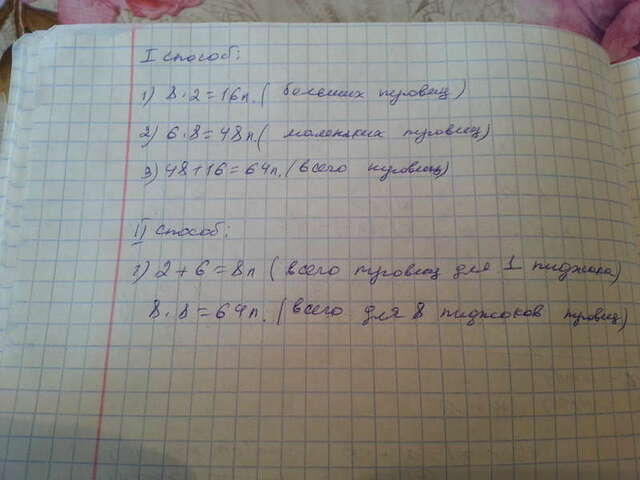 I способ:
1) 8·2=16п. (больших пуговиц)
2) 6·8=48п. (маленьких пуговиц)
3) 48+16=64п. (всего пуговиц)
II способ:
1) 2+6=8п (всего пуговиц для 1 пиджака)
8·8=64п. (всего для 8 пиджаков пуговиц)